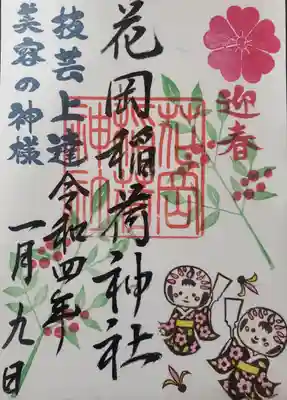 迎春
花岡稲荷神社
花岡稲荷神社
令和四年
一月九日
技芸上達
美容の神様